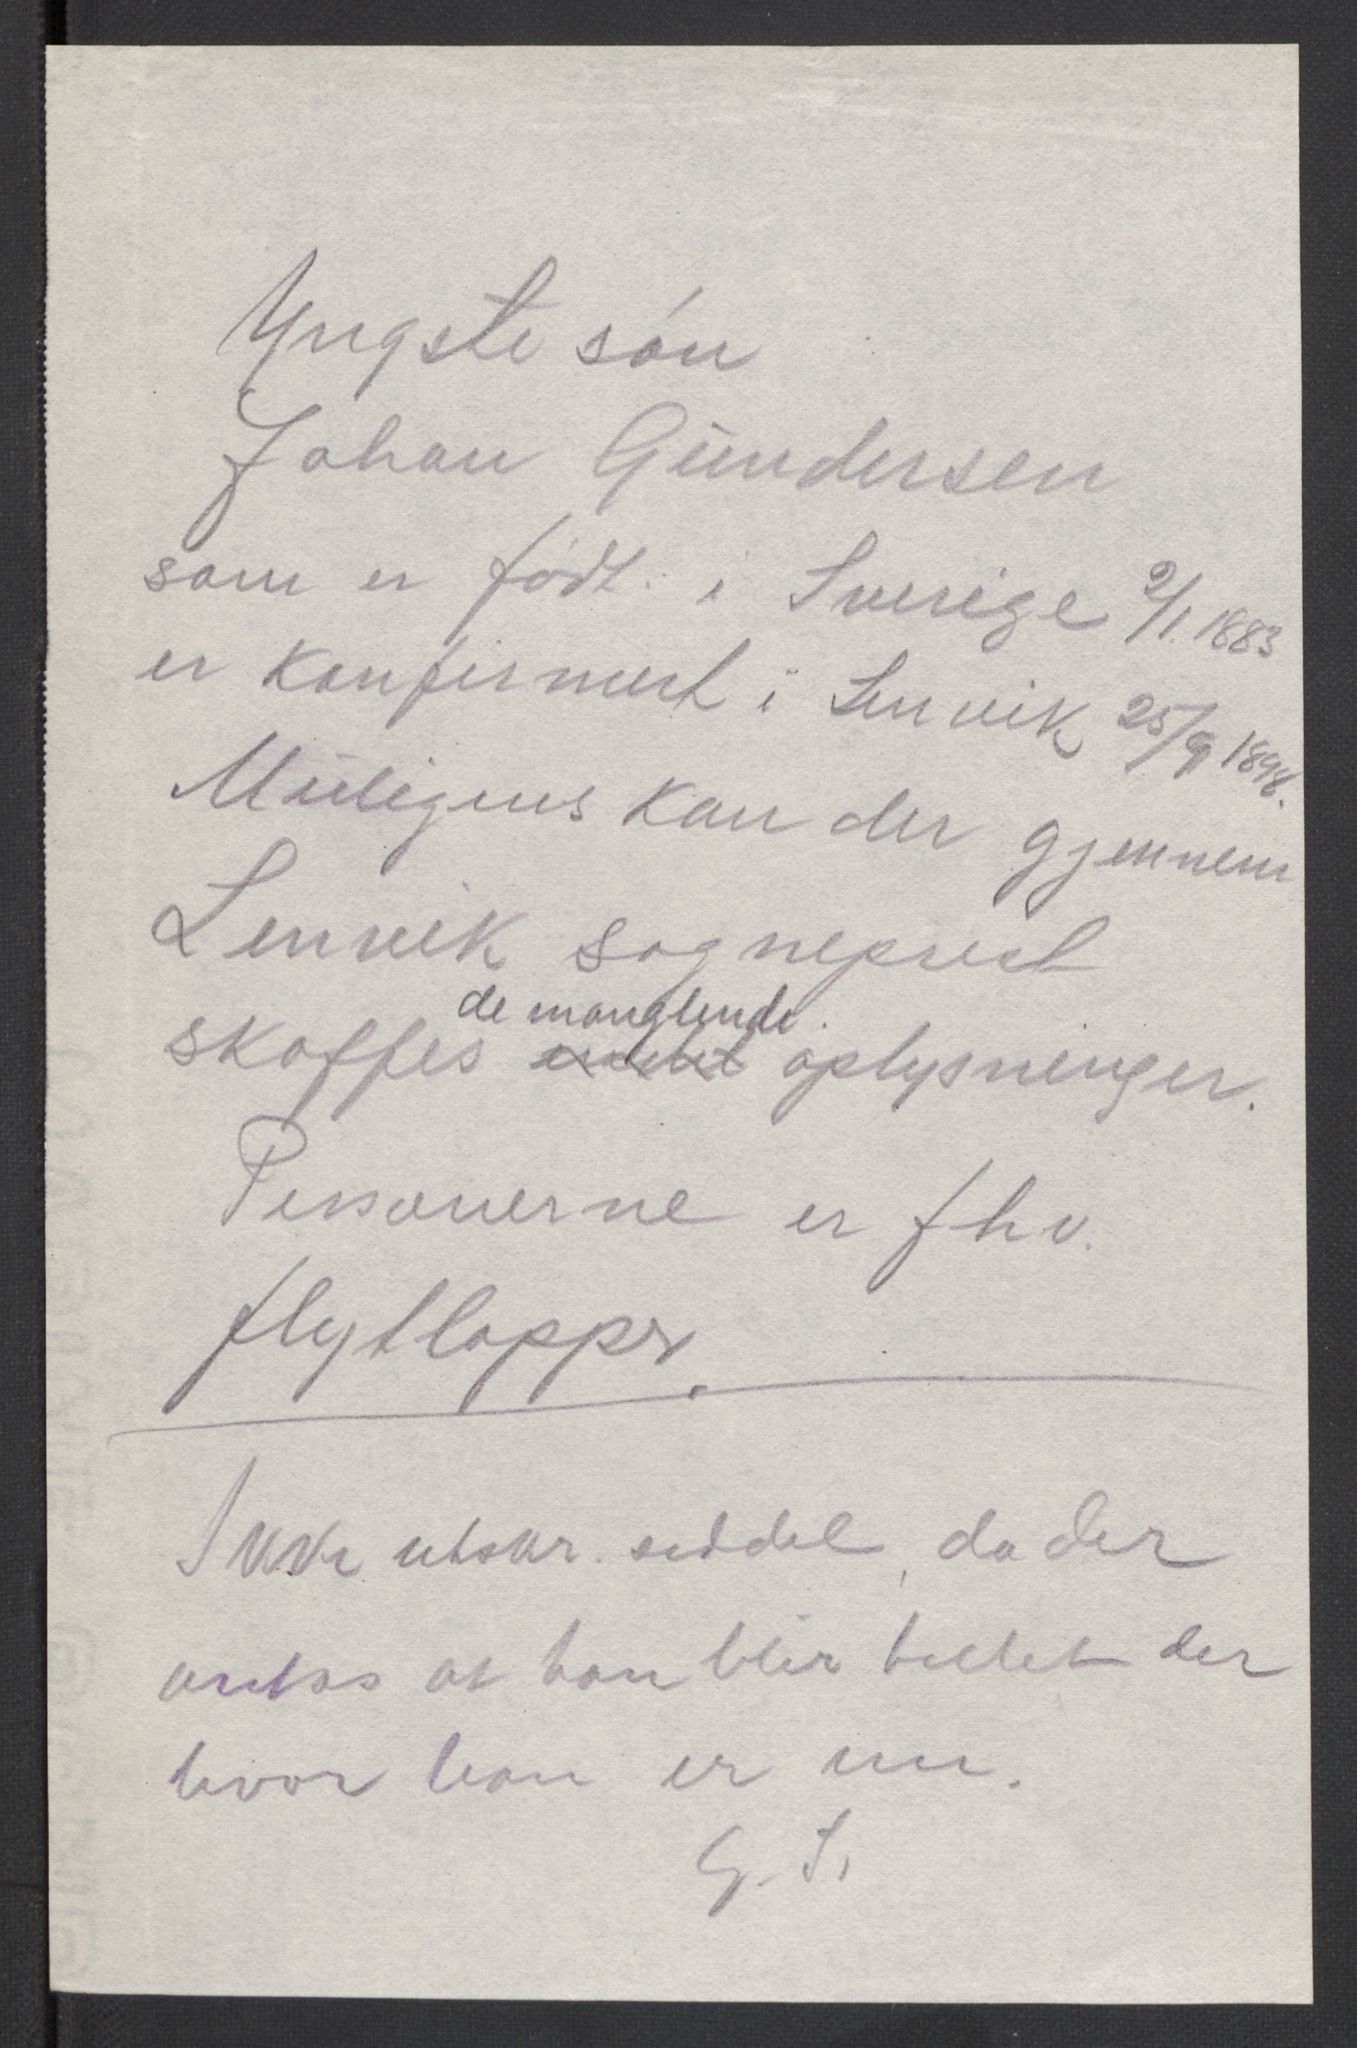 Yngste søn
Johan Gundersen
som er født i Sverige 2/1. 1883
er konfirmert i Lenvik 25/9 1898.
Muligens kan der gjennem
Lenvik sogneprest
de manglende
skaffes oplysninger.
Personerne er fhv.
flytlapper.
Ikke utskr. seddel, da der
antas at han blir tellet der
hvor han er nu.
G. S.